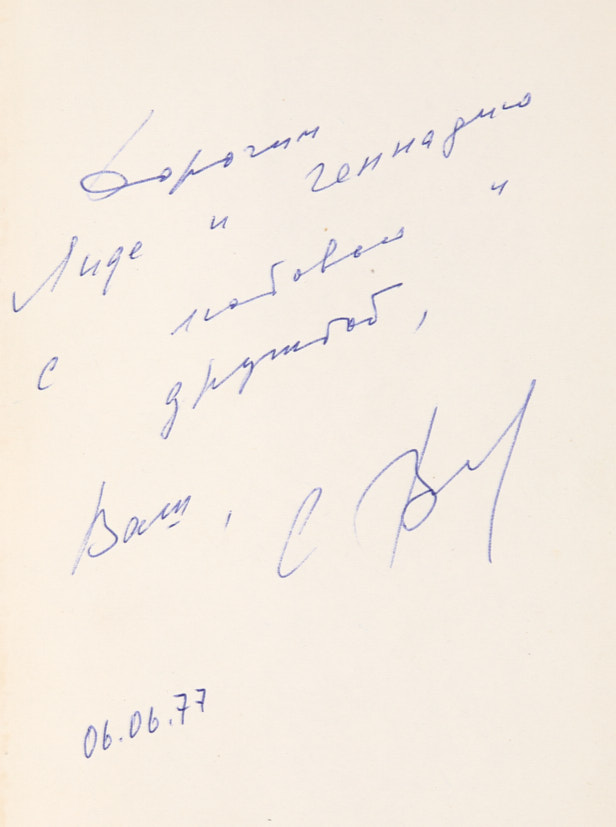 Дорогим
Лиде и Геннадию
с любовью и
дружбой,
Ваш, С
06.06.77